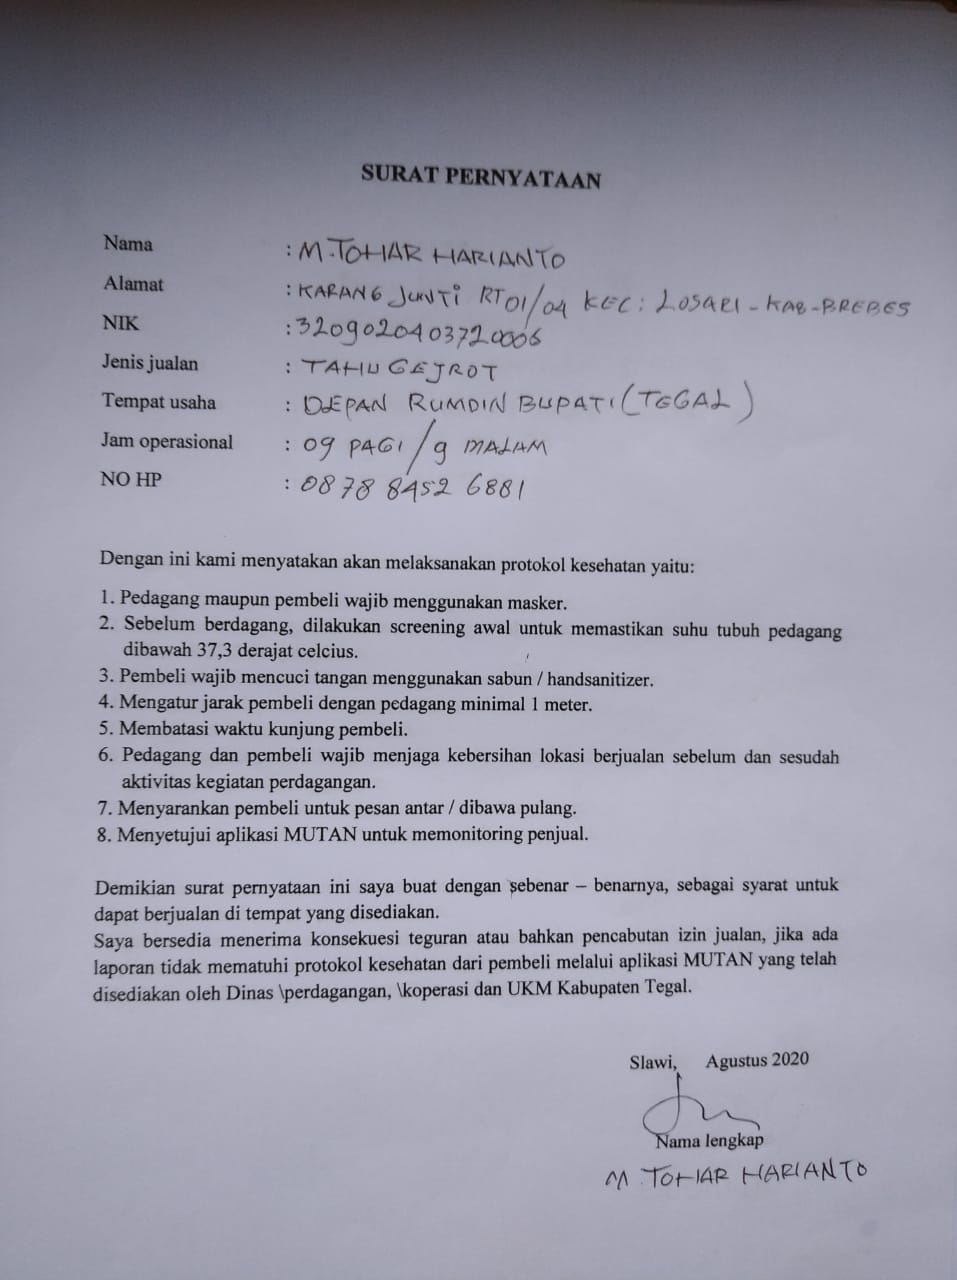 SURAT PERNYATAAN
Nama : M. TOHAR HARIANTO
Alamat : KARANG JUNTI RT 01/04 KEC : LOSARI - KAB - BREBES
NIK : 3209020403720006
Jenis jualan : TAHU GEJROT
Tempat usaha : DEPAN RUMDIN BUPATI (TEGAL)
Jam operasional : 09 PAGI / 9 MALAM
NO HP : 0878 8452 6881
Dengan ini kami menyatakan akan melaksanakan protokol kesehatan yaitu:
1. Pedagang maupun pembeli wajib menggunakan masker.
2. Sebelum berdagang, dilakukan screening awal untuk memastikan suhu tubuh pedagang
dibawah 37,3 derajat celcius.
3. Pembeli wajib mencuci tangan menggunakan sabun / handsanitizer.
4. Mengatur jarak pembeli dengan pedagang minimal 1 meter.
5. Membatasi waktu kunjung pembeli.
6. Pedagang dan pembeli wajib menjaga kebersihan lokasi berjualan sebelum dan sesudah
aktivitas kegiatan perdagangan.
7. Menyarankan pembeli untuk pesan antar / dibawa pulang.
8. Menyetujui aplikasi MUTAN untuk memonitoring penjual.
Demikian surat pernyataan ini saya buat dengan sebenar – benarnya, sebagai syarat untuk
dapat berjualan di tempat yang disediakan.
Saya bersedia menerima konsekuesi teguran atau bahkan pencabutan izin jualan, jika ada
laporan tidak mematuhi protokol kesehatan dari pembeli melalui aplikasi MUTAN yang telah
disediakan oleh Dinas \perdagangan, \koperasi dan UKM Kabupaten Tegal.
Slawi, Agustus 2020
Nama lengkap
M. TOHAR HARIANTO